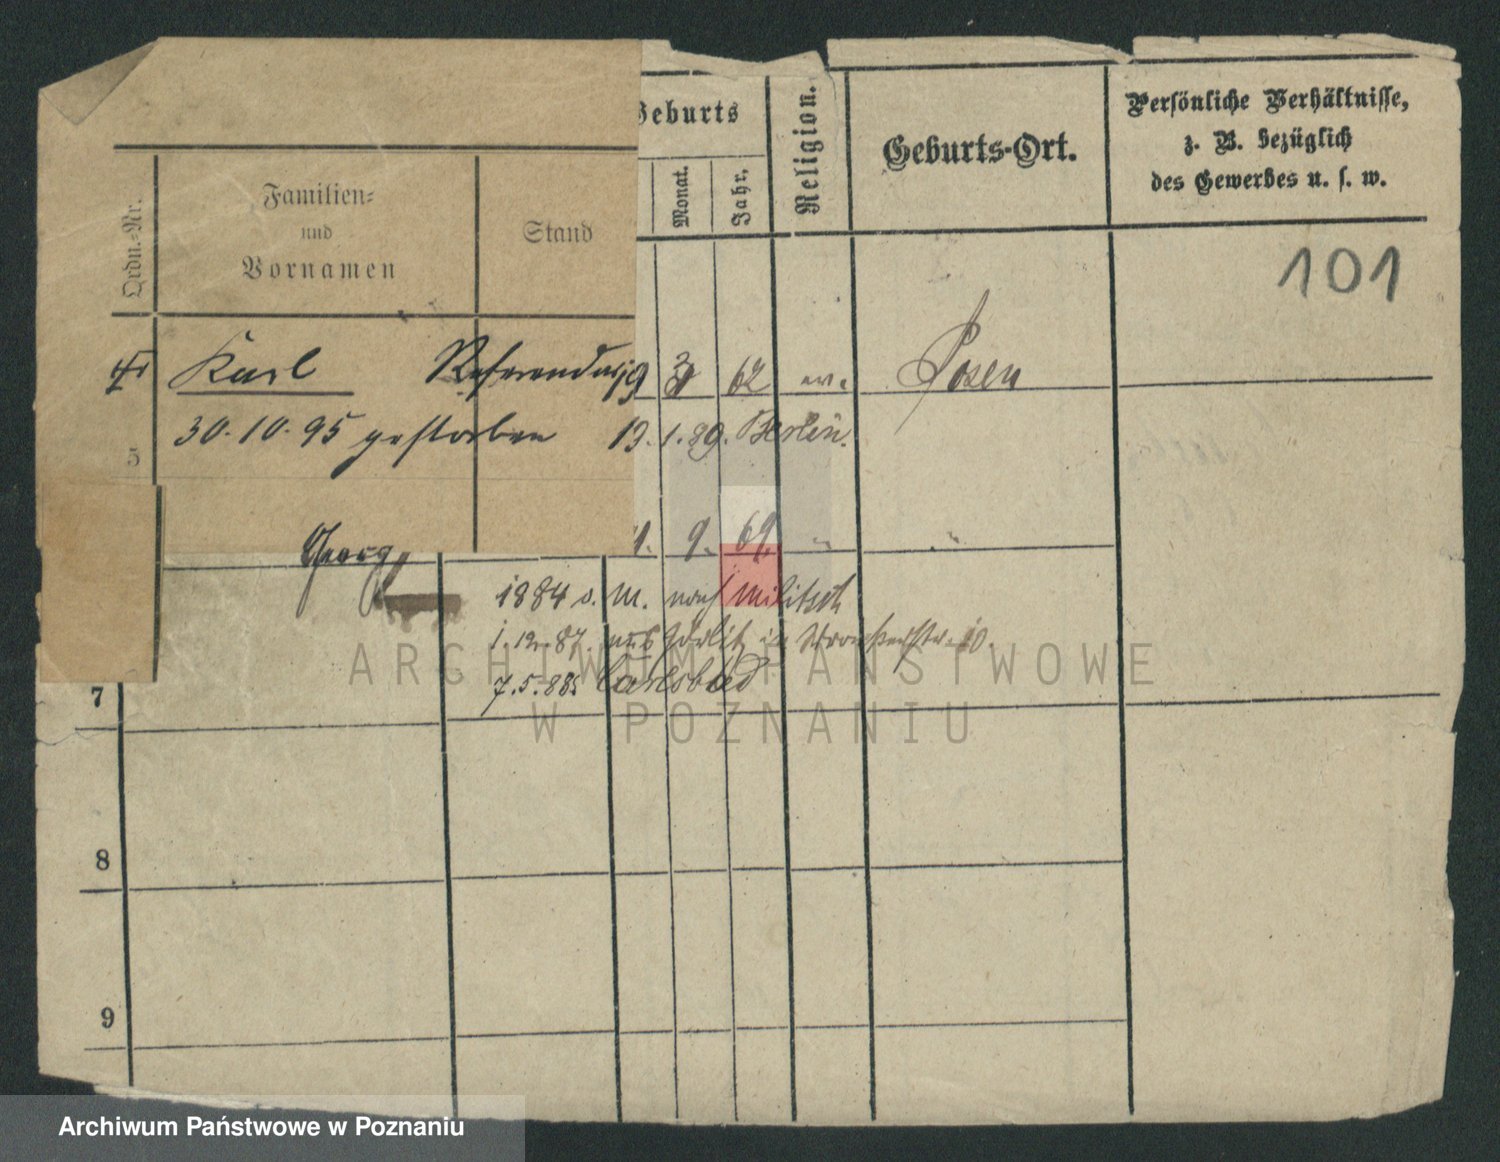 Ordn.-Nr.
Familien-
und
Vornamen
Stand
Geburts
Monat.
Jahr.
Religion.
Geburts-Ort.
Persönliche Verhältnisse,
z. B. bezüglich
des Gewerbes u. s. w.
101
4 Karl Referendar 19 62 ev. Posen
30.10.95 gestorben 19.1.89. Berlin.
5
Georg 9. 69. "  "
1884 v. M. nach Militsch
1.12.87. aus Görlitz in 10
7.5.88 Carlsbad
ARCHIWUM PAŃSTWOWE
W POZNANIU
7
8
9
Archiwum Państwowe w Poznaniu